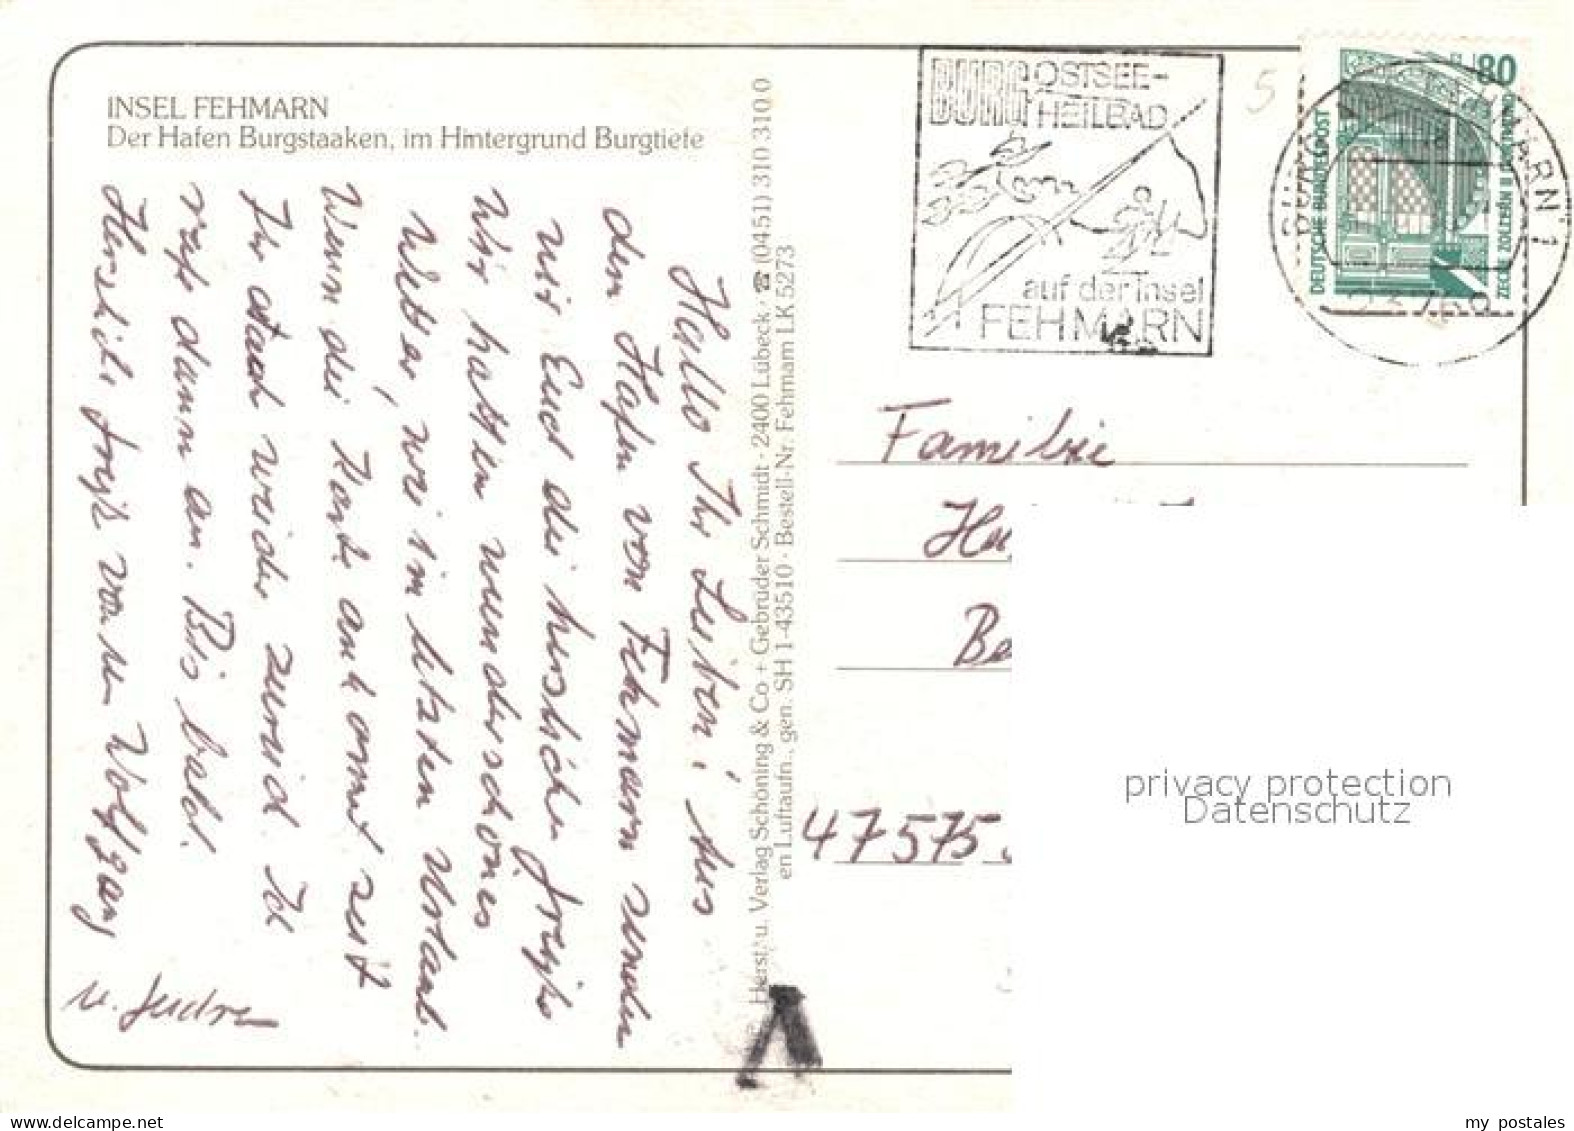 INSEL FEHMARN
Der Hafen Burgstaaken, im Hintergrund Burgtiefe
Hallo Ihr Lieben! Aus
dem Hafen von Fehmarn senden
wir Euch die herzlichen Grüße
Wir hatten wunderschönes
Wetter, wie im letzten Urlaub.
Wenn die Karte ankommt seit
Ihr auch wieder zurück. Ich
rufe dann an. Bis bald.
Herzliche Grüße von Wolfgang
u.
Herst. u. Verlag Schöning & Co + Gebrüder Schmidt · 2400 Lübeck ☎ (0451) 310 310 0
en Luftaufn. gen. SH 1-43510 · Bestell-Nr. Fehmarn LK 5273
BURG OSTSEE-
HEILBAD
auf der Insel
FEHMARN
5
80
DEUTSCHE BUNDESPOST
ZECHE ZOLLERN II DORTMUND
MARN 1
Familie
Be
47575
privacy protection
Datenschutz
my postales